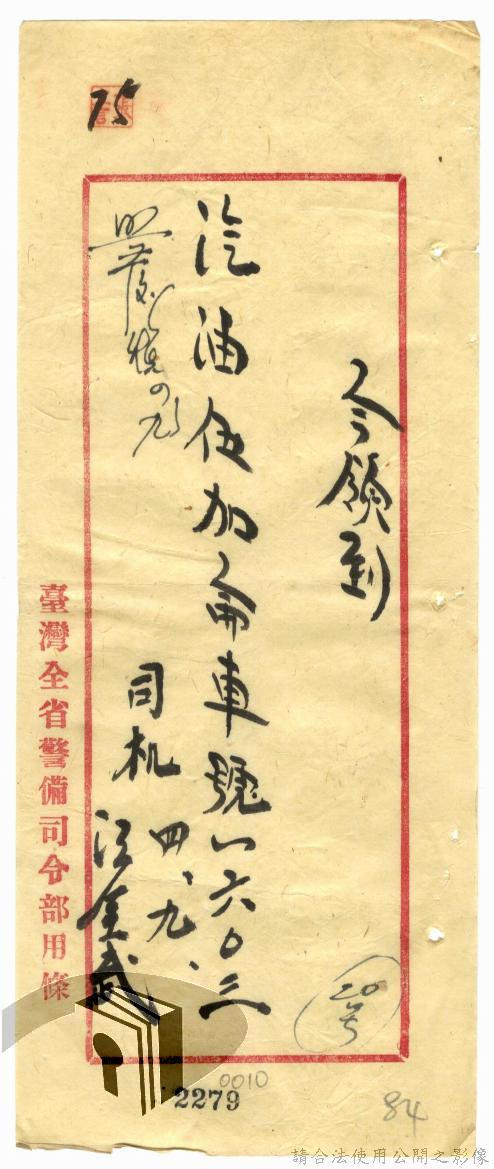 今領到
汽油伍加侖車號一六〇三
四、九、
司机 江金武
照發
四九
20号
75
臺灣全省警備司令部用條
2279
0010
84
請合法使用公開之影像